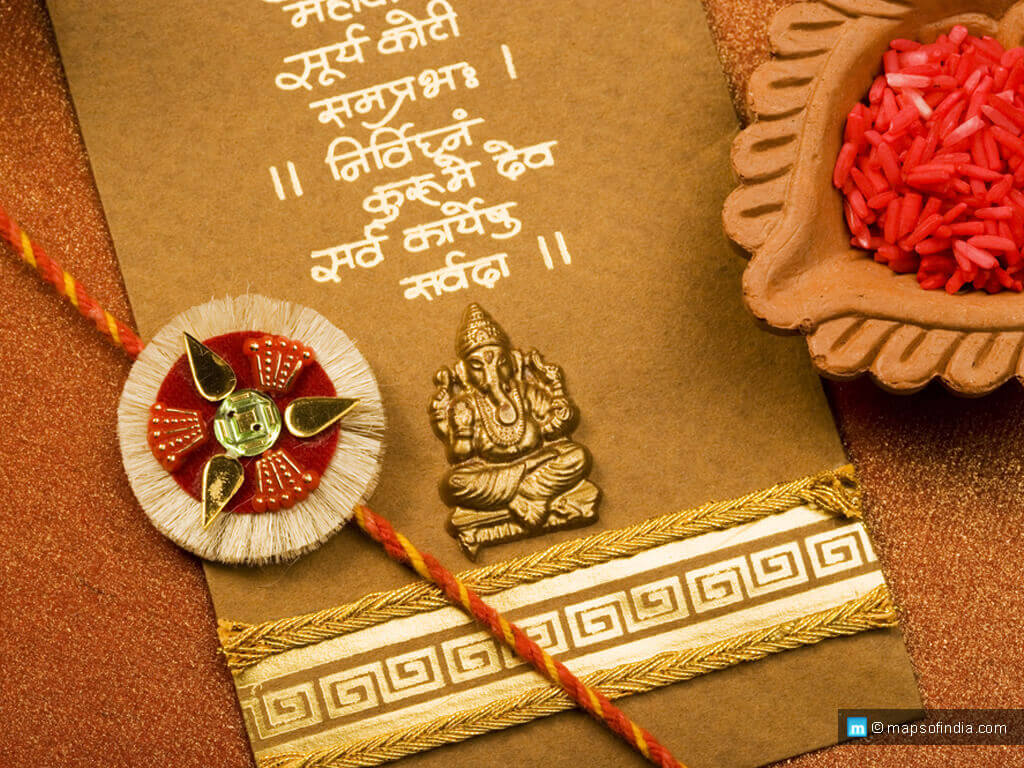 सूर्य कोटी
समप्रभः ।
॥ निर्विघ्नं
कुरूमे देव
सर्व कार्येषु
सर्वदा ॥
m © mapsofindia.com